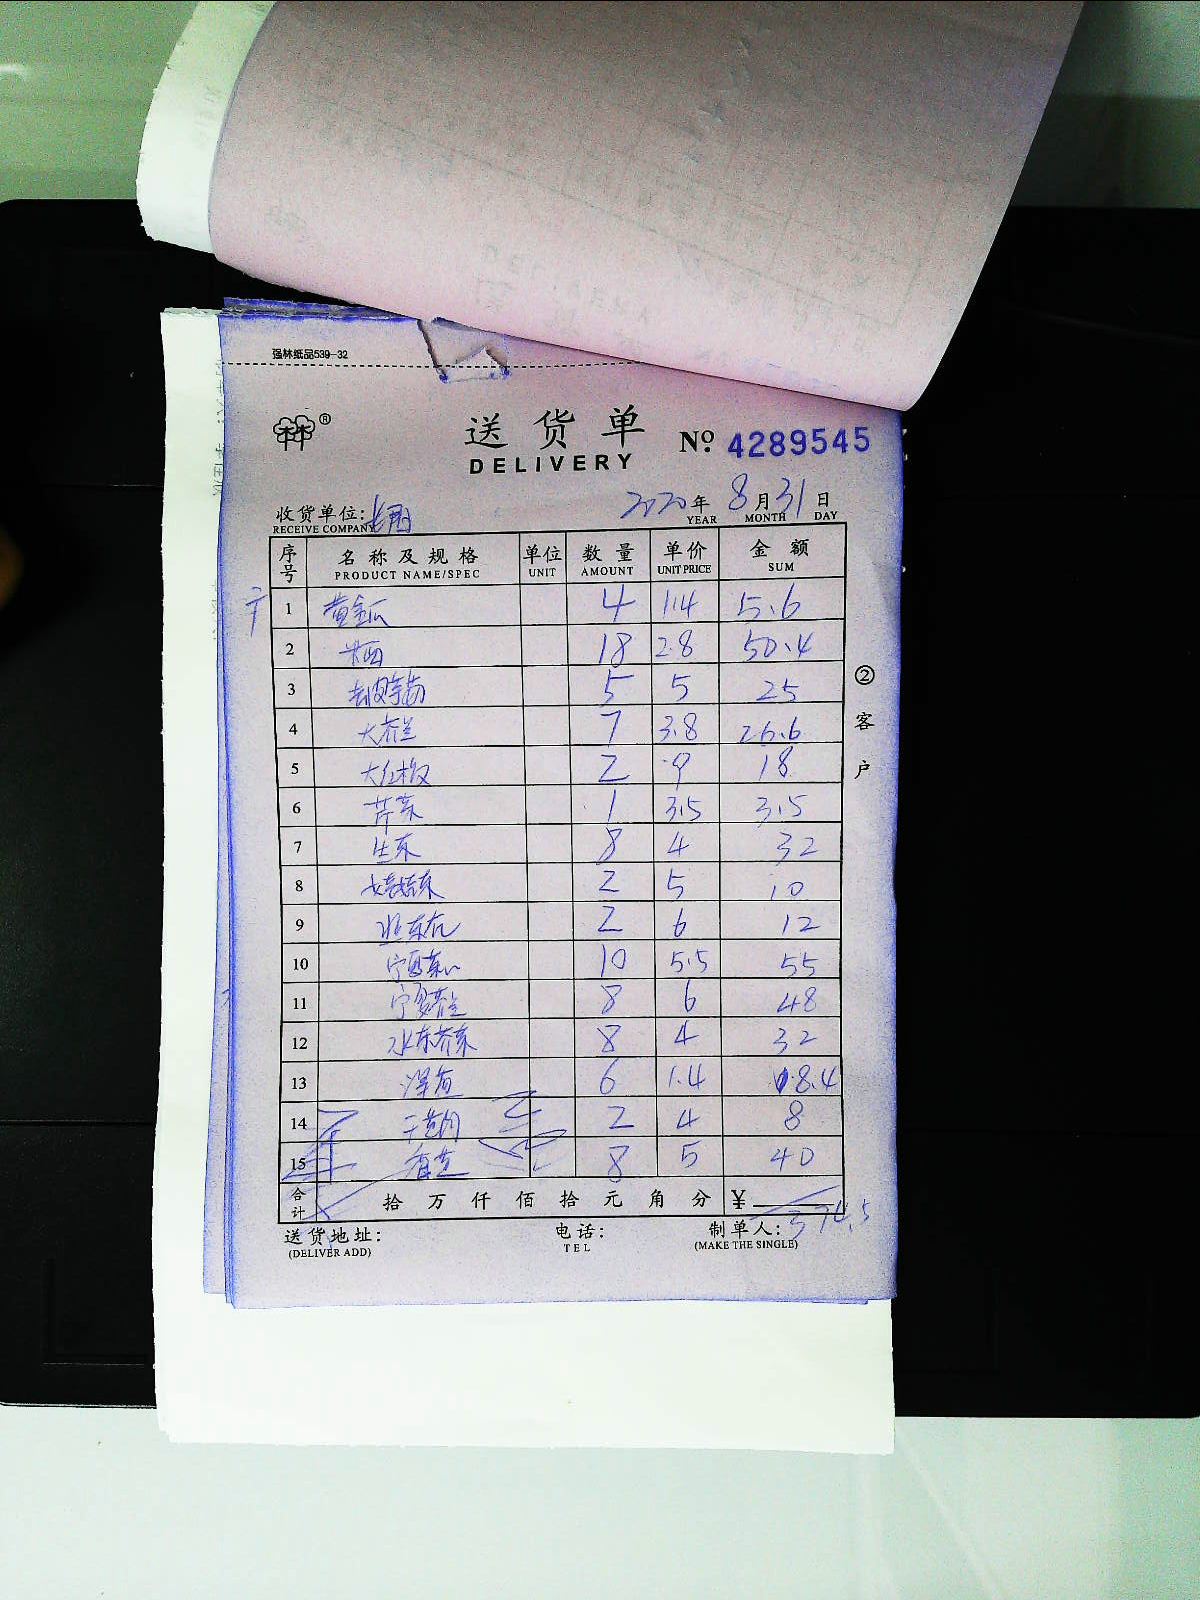 强林纸品539-32
送货单 Nº: 4289545
DELIVERY
收货单位: 2020年8月31日
RECEIVE COMPANY YEAR MONTH DAY
序号 名称及规格 单位 数量 单价 金额
PRODUCT NAME/SPEC UNIT AMOUNT UNIT PRICE SUM
1 黄金瓜 4 1.4 5.6
2 18 2.8 50.4
3 5 5 25
4 大芥兰 7 3.8 26.6
5 大红椒 2 9 18
6 芹菜 1 3.5 3.5
7 生菜 8 4 32
8 娃娃菜 2 5 10
9 2 6 12
10 宁夏菜心 10 5.5 55
11 宁夏芥兰 8 6 48
12 水东芥菜 8 4 32
13 6 1.4 8.4
14 2 4 8
15 8 5 40
合计 拾万仟佰拾元角分 ¥ 374.5
送货地址: 电话: 制单人:
(DELIVER ADD) TEL (MAKE THE SINGLE)
②客户